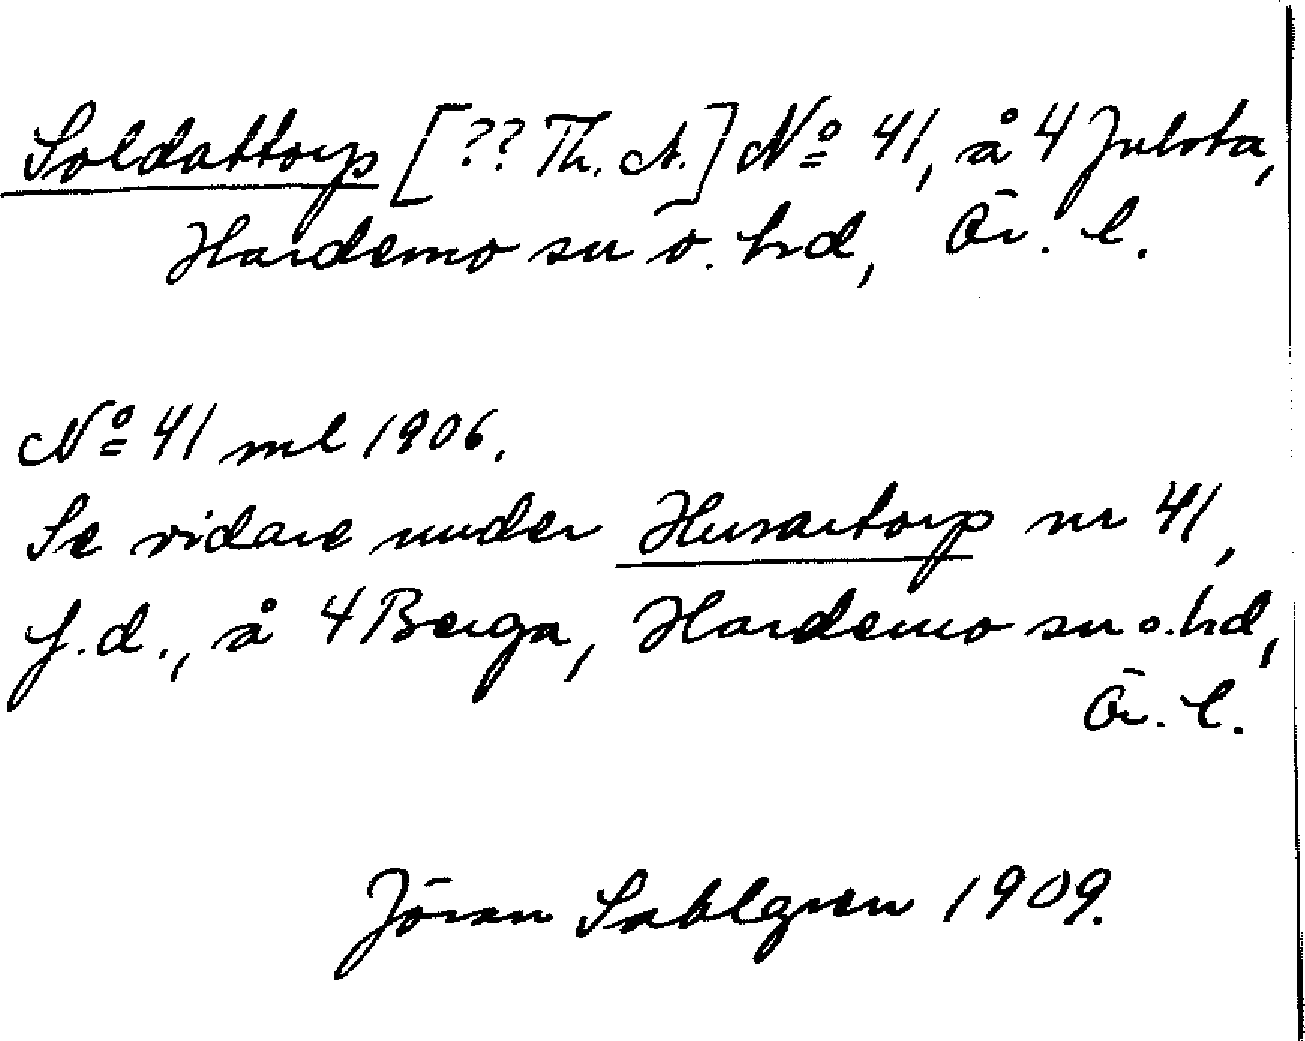 Soldattorp [?? Th. A.] Nº 41, å 4 Julsta,
Hardemo sn o. hd, Ör. l.
Nº 41 ml 1906.
Se vidare under Husartorp nr 41,
f.d., å 4 Berga, Hardemo sn o. hd,
Ör. l.
Jöran Sahlgren 1909.